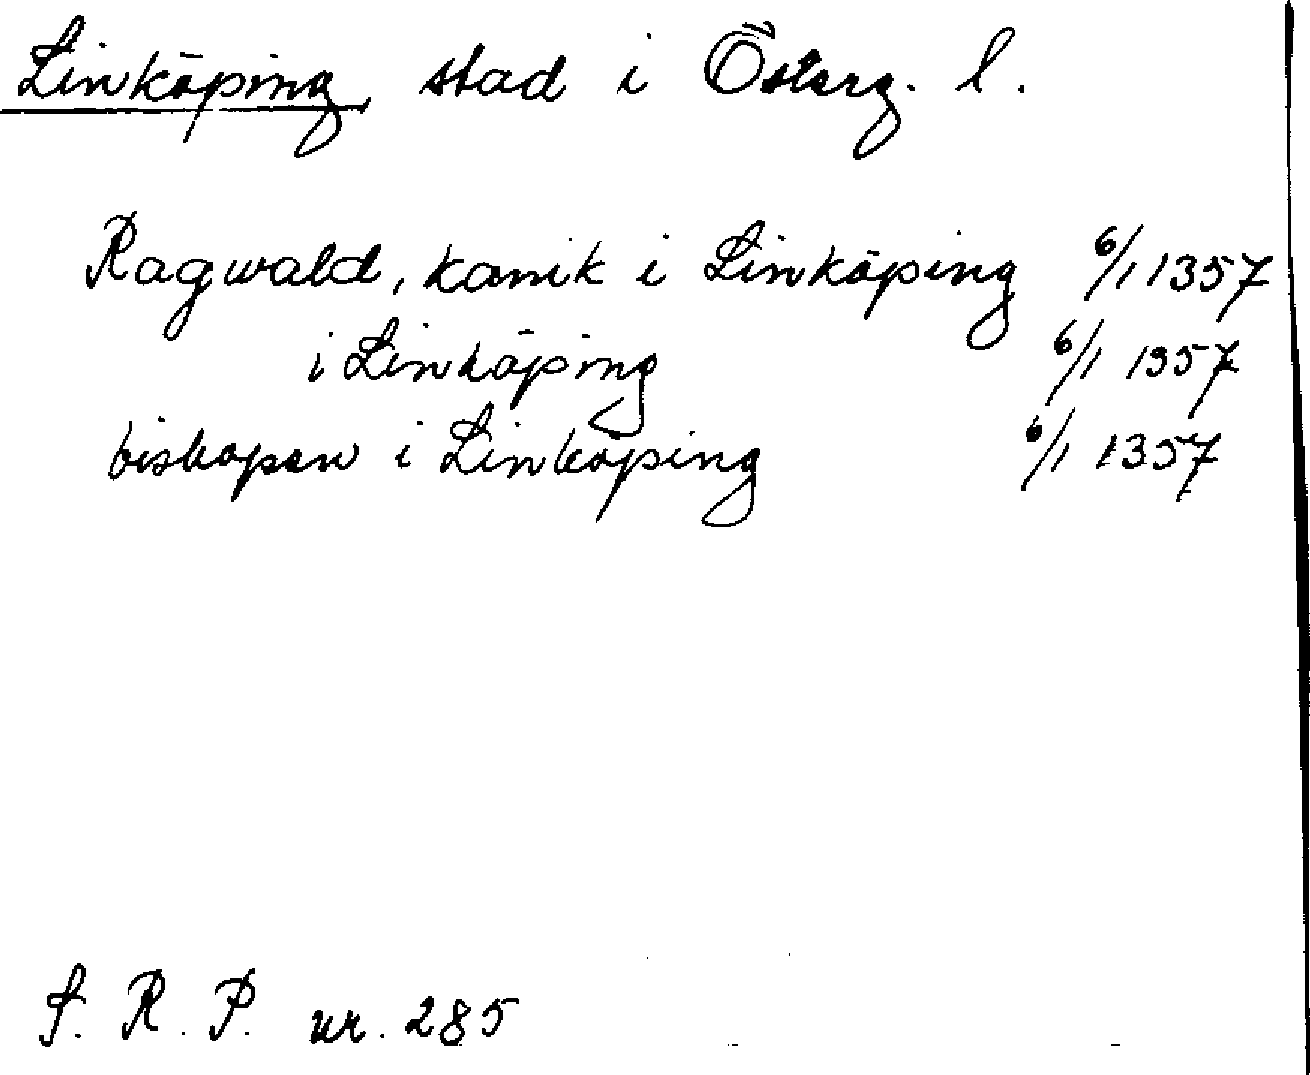 Linköping, stad i Österg. l.
Ragwald, kanik i Linköping 6/1 1357
i Linköping 6/1 1357
biskopen i Linköping 6/1 1357
S. R. P. nr. 285